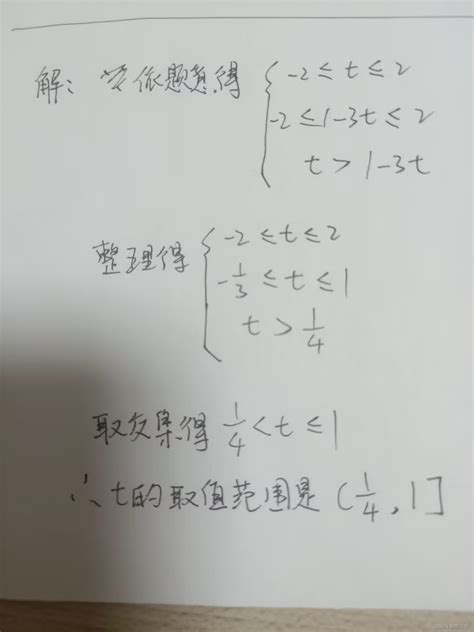 解：依题意得 { -2 ≤ t ≤ 2
-2 ≤ 1-3t ≤ 2
t > 1-3t
整理得 { -2 ≤ t ≤ 2
-1/3 ≤ t ≤ 1
t > 1/4
取交集得 1/4 < t ≤ 1
∴ t的取值范围是 (1/4, 1]